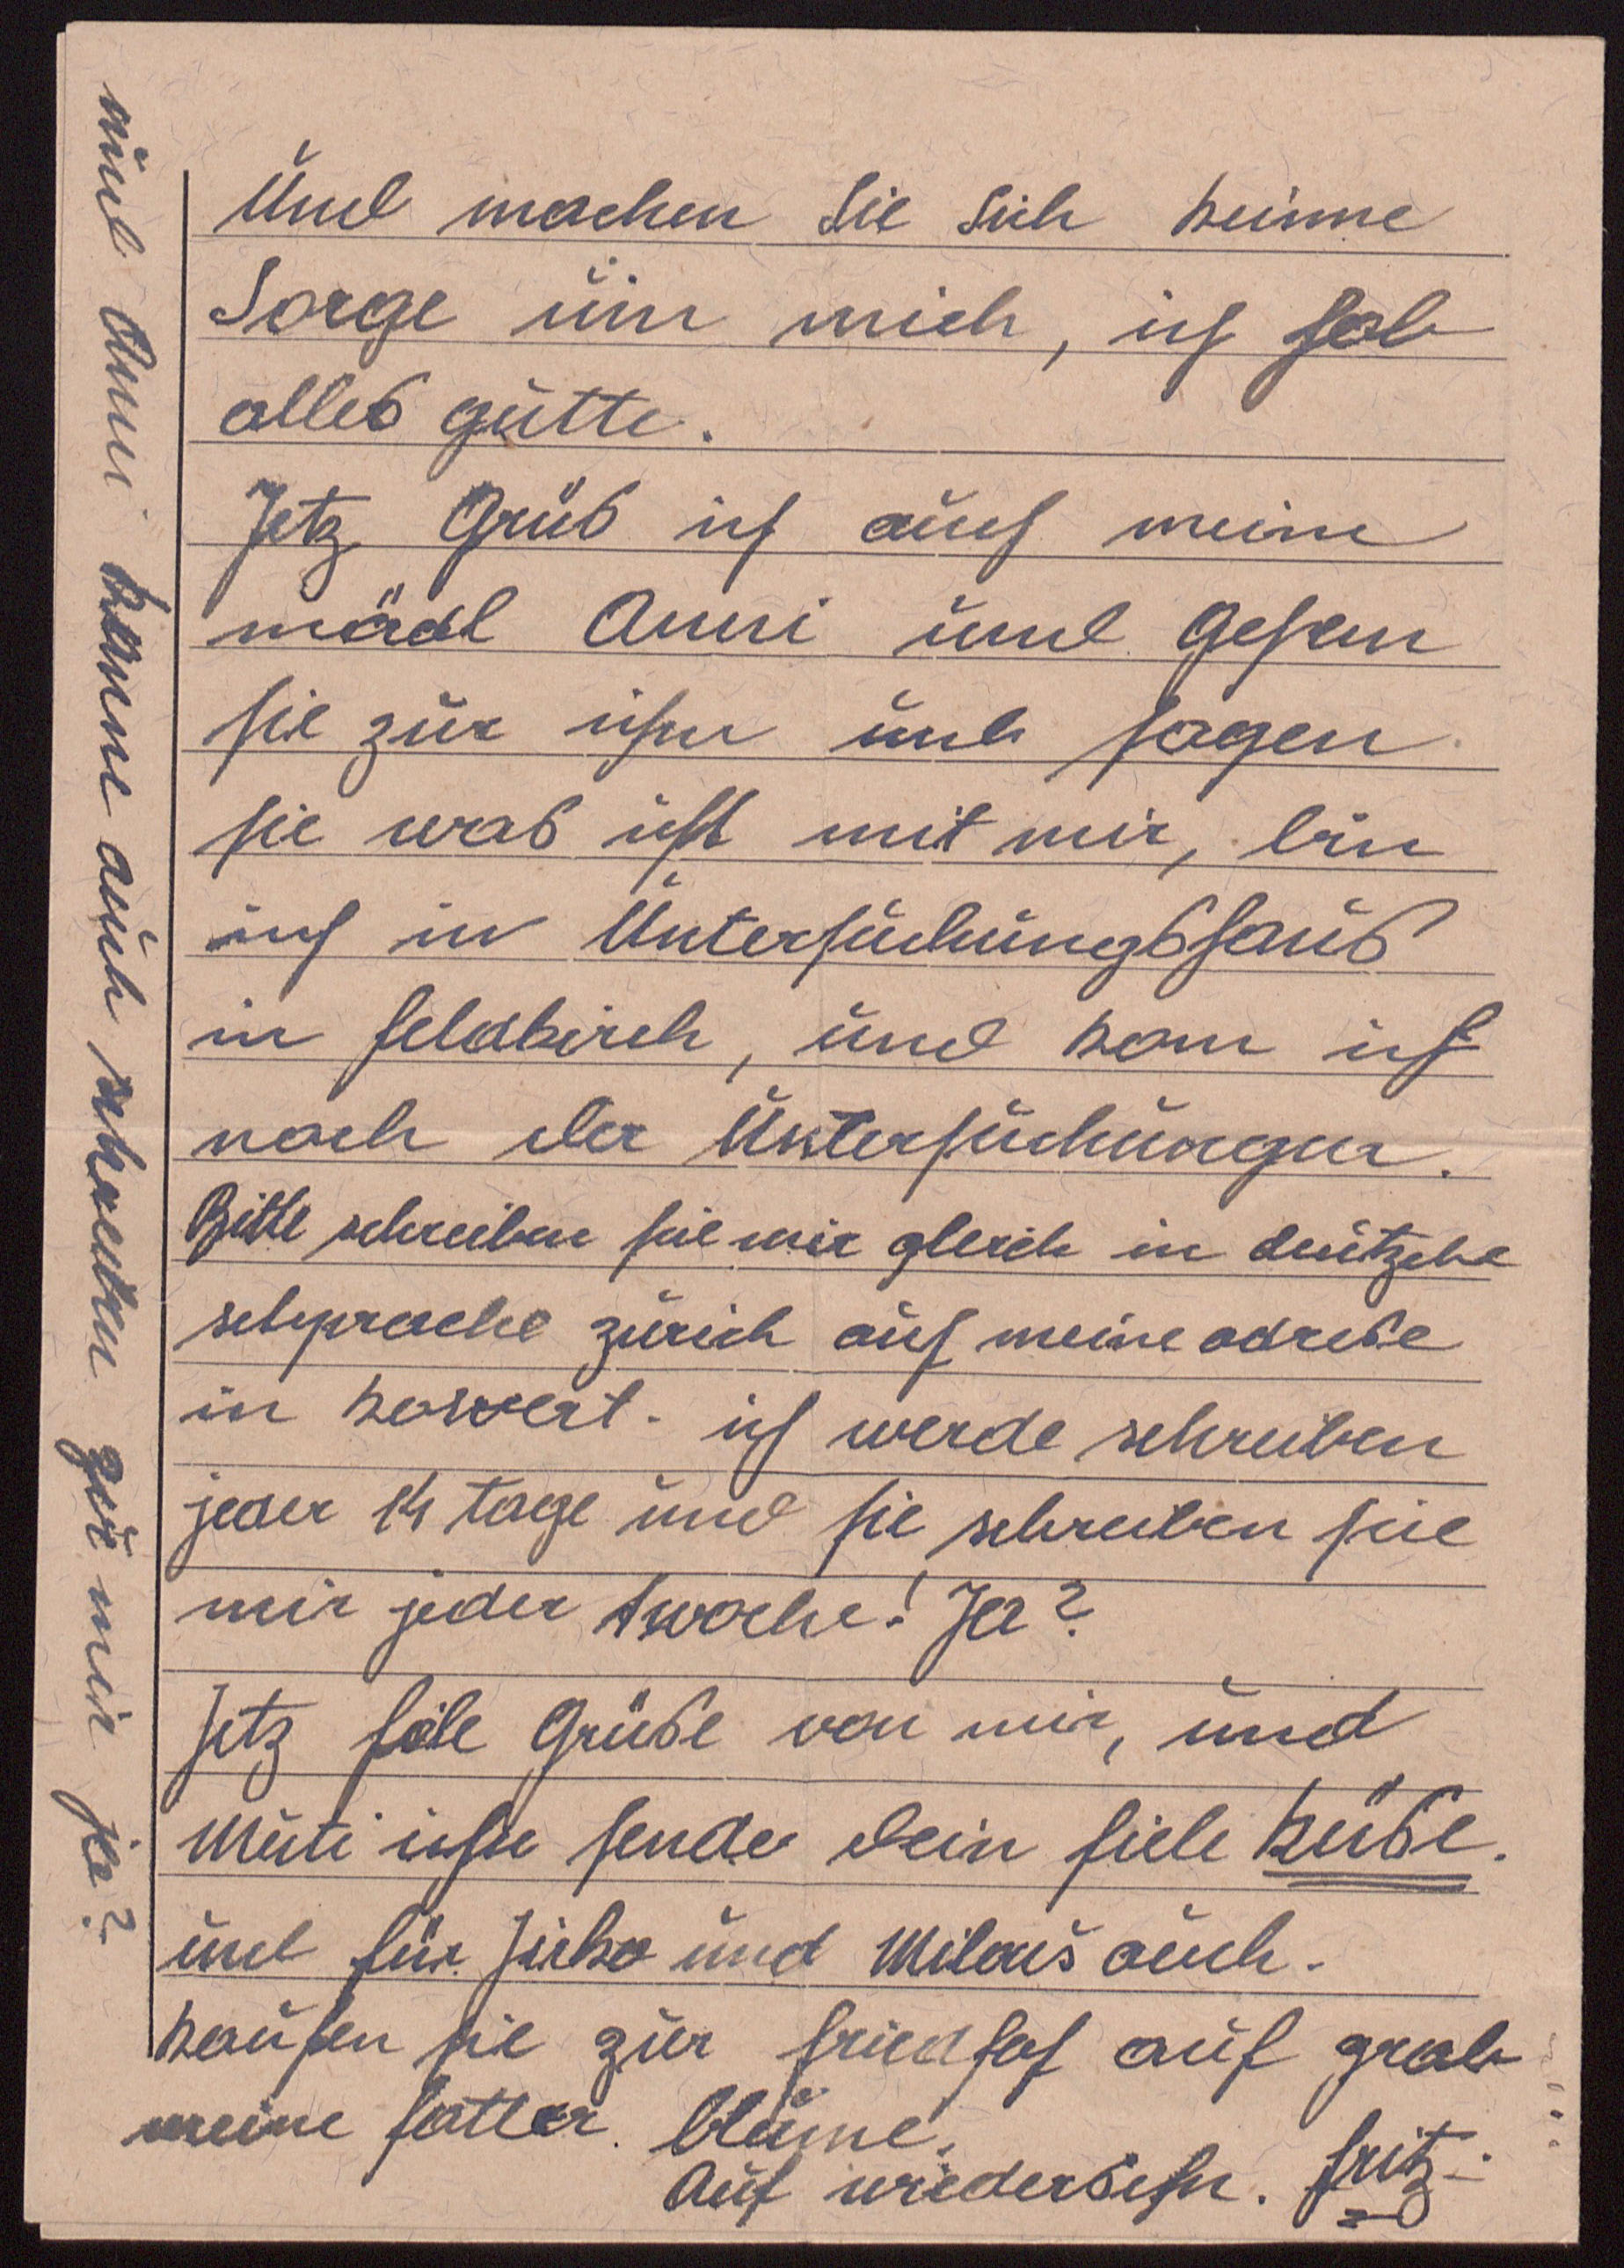 Und machen Sie Sich keinne
Sorge üm mich, ich hab
alles gutte.
Jetz Grüs ich auch meine
mädl Anni und gehen
sie zur ihm und sagen
sie was ist mit mir, bin
ich in Untersuchungshaus
in feldkirch, und kom ich
noch der Untersuchungen.
Bitte schreiben sie mir gleich in deutzche
schprache zurich auf meine adrese
in kowert. ich werde schreiben
jeder 14 tage und sie schreiben sie
mir jeder woche! Ja?
Jetz file Grüse von mir, und
Muti ihn sende dein fiele küse.
und für Jirka und Milouš auch.
kaufen sie zur friedhof auf grab
meine fatter. blume.
Auf wiedersehn. fritz.
und Anni kanne auch schreiben zu mir ja?